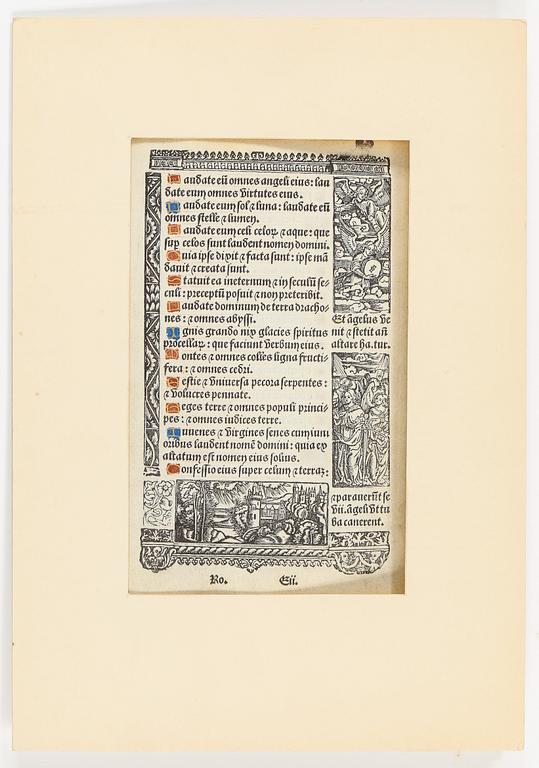 Laudate eū omnes angeli eius: lau
date eum omnes virtutes eius.
Laudate eum sol ⁊ luna: laudate eū
omnes stelle ⁊ lumen.
Laudate eum celi celoꝝ ⁊ aque: que
suꝑ celos sunt laudent nomen domini.
Quia ipse dixit ⁊ facta sunt: ipse mā
dauit ⁊ creata sunt.
Statuit ea in eternum ⁊ in seculū se-
culi: preceptū posuit ⁊ non preteribit.
Laudate dominum de terra dracho-
nes: ⁊ omnes abyssi.
Ignis grando nix glacies spiritus
procellaꝝ: que faciunt verbum eius.
Montes ⁊ omnes colles ligna fructi-
fera: ⁊ omnes cedri.
Bestie ⁊ vniuersa pecora serpentes:
⁊ volucres pennate.
Reges terre ⁊ omnes populi princi-
pes: ⁊ omnes iudices terre.
Iuuenes ⁊ virgines senes cum iuni
oribus laudent nomē domini: quia ex
altatum est nomen eius solius.
Confessio eius super celum ⁊ terraꝫ:
Et āgelus ve
nit ⁊ stetit añ
altare ha. tur.
⁊ parauerūt se
vii. āgeli vt tu
ba canerent.
Ro. Eii.